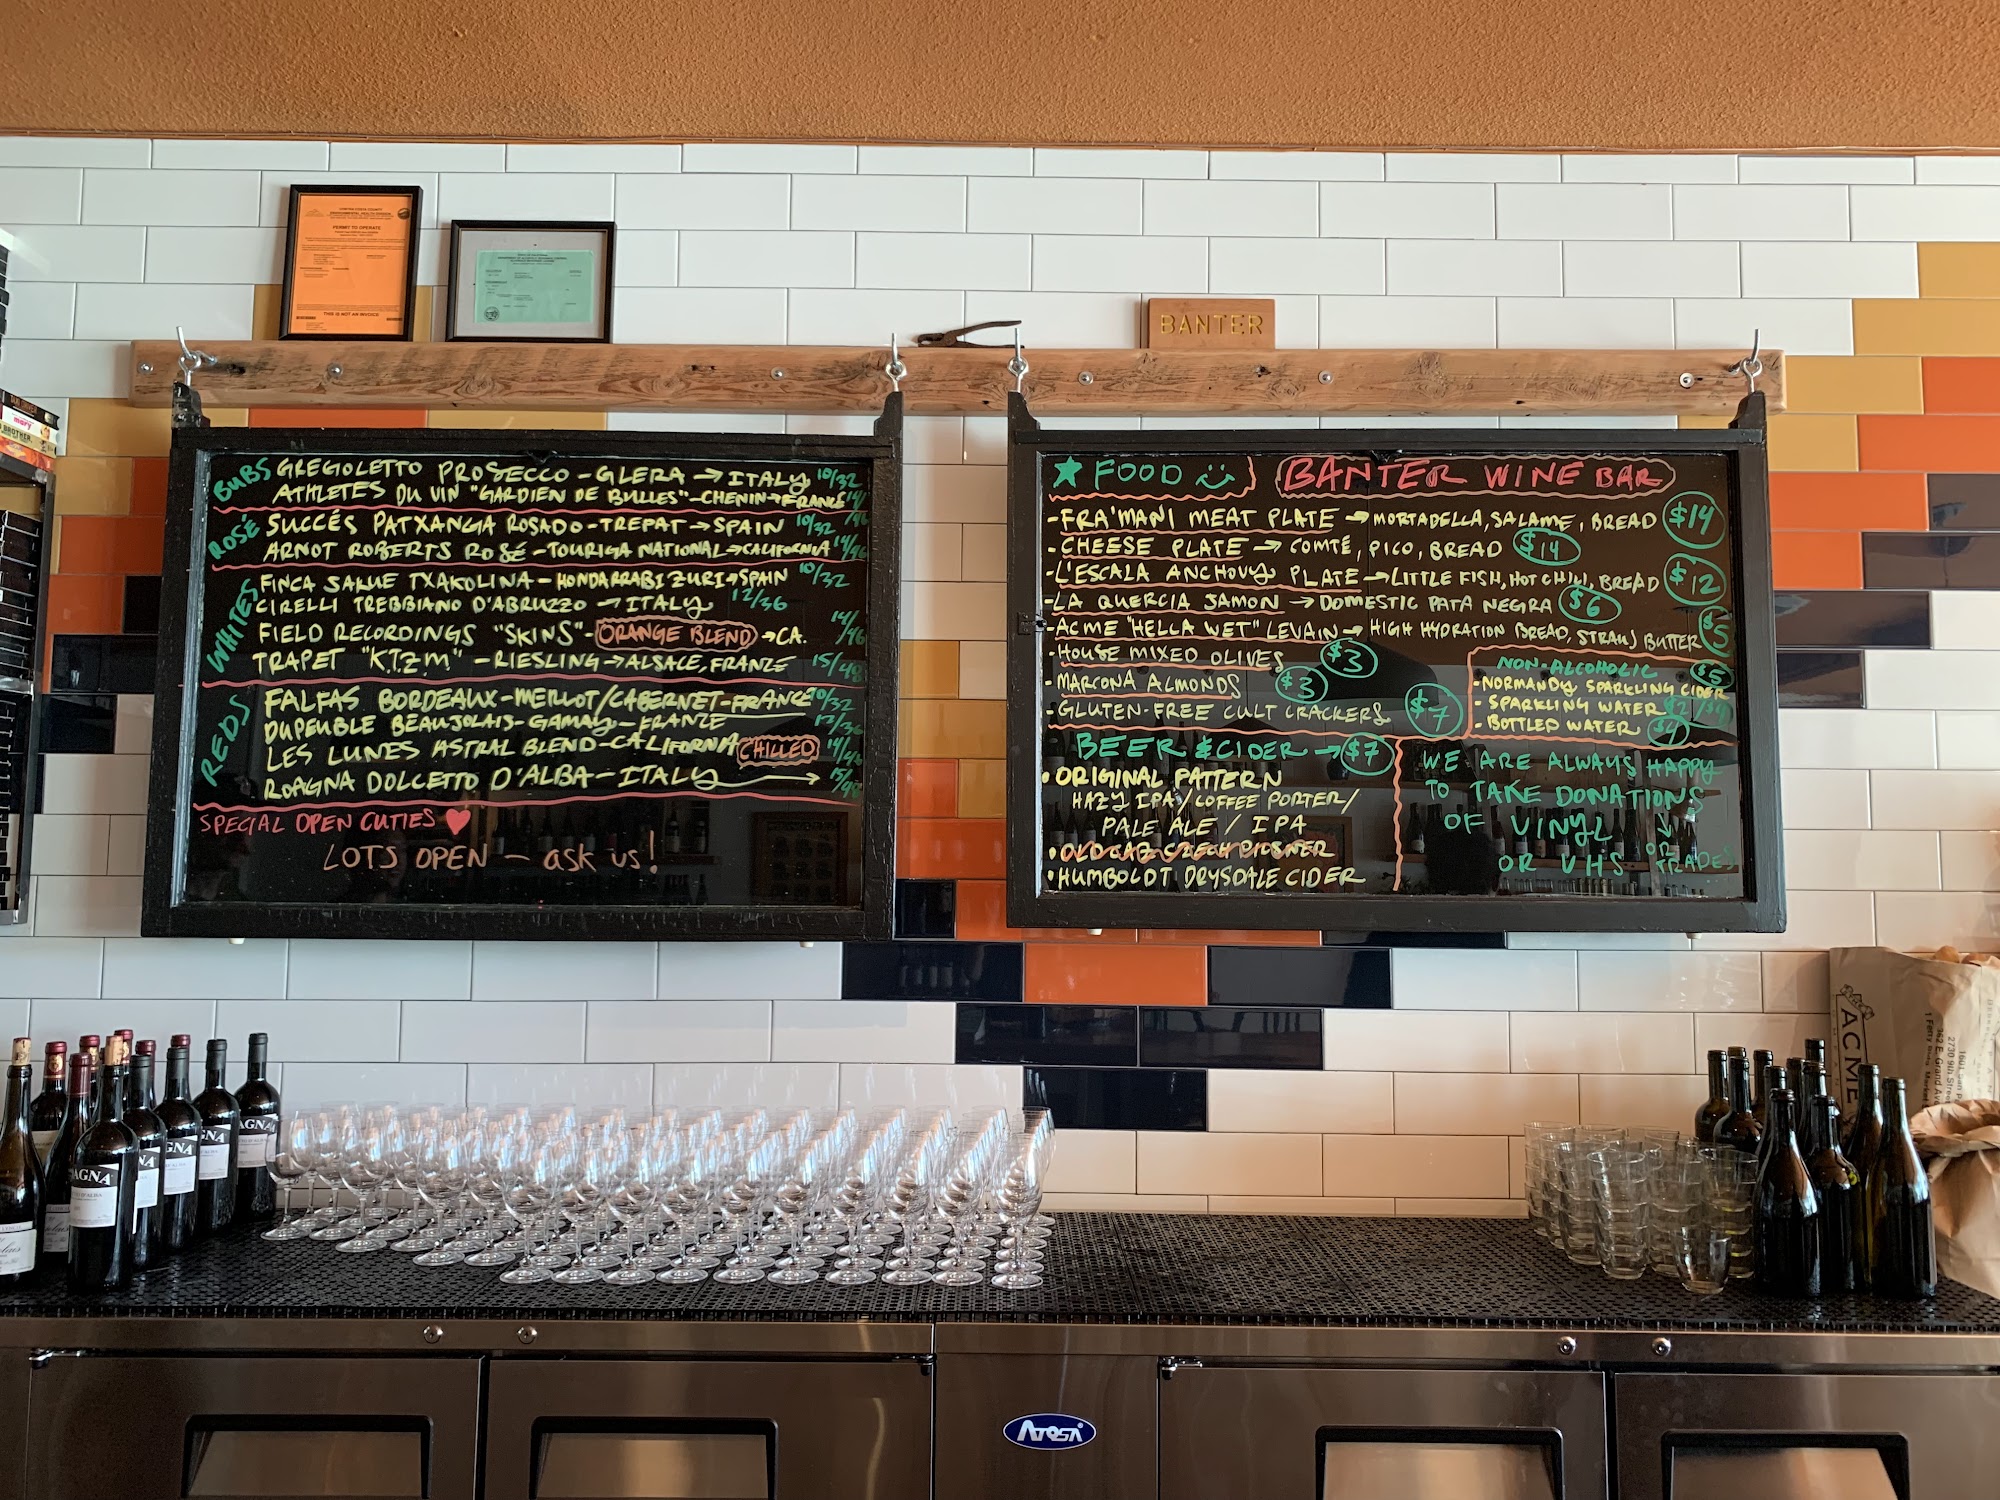 PERMIT TO OPERATE
THIS IS NOT AN INVOICE
BANTER
BUBS
GREGOLETTO PROSECCO - GLERA → ITALY 10/32
ATHLETES DU VIN "GARDIEN DE BULLES" - CHENIN → FRANCE 14/46
ROSÉ
SUCCÉS PATXANGA ROSADO - TREPAT → SPAIN 10/32
ARNOT ROBERTS ROSÉ - TOURIGA NATIONAL → CALIFORNIA 14/46
WHITES
FINCA SAKUE TXAKOLINA - HONDARRABI ZURI → SPAIN 10/32
CIRELLI TREBBIANO D'ABRUZZO → ITALY 12/36
FIELD RECORDINGS "SKINS" - ORANGE BLEND → CA. 14/46
TRAPET "K.T.Z.M" - RIESLING → ALSACE, FRANCE 15/48
REDS
FALFAS BORDEAUX - MERLOT/CABERNET - FRANCE 10/32
DUPEUBLE BEAUJOLAIS - GAMAY - FRANCE 12/36
LES LUNES ASTRAL BLEND - CALIFORNIA CHILLED 14/46
ROAGNA DOLCETTO D'ALBA - ITALY → 15/48
SPECIAL OPEN CUTIES ♥
LOTS OPEN - ask us!
★ FOOD BANTER WINE BAR
- FRA'MANI MEAT PLATE → MORTADELLA, SALAME, BREAD $14
- CHEESE PLATE → COMTÉ, PICO, BREAD $14
- L'ESCALA ANCHOVY PLATE → LITTLE FISH, HOT CHILI, BREAD $12
- LA QUERCIA JAMON → DOMESTIC PATA NEGRA $6
- ACME "HELLA WET" LEVAIN → HIGH HYDRATION BREAD, STRAUS BUTTER $5
- HOUSE MIXED OLIVES $3
- MARCONA ALMONDS $3
- GLUTEN-FREE CULT CRACKERS $7
NON-ALCOHOLIC
- NORMANDY SPARKLING CIDER $5
- SPARKLING WATER $2/$4
- BOTTLED WATER $4
BEER & CIDER → $7
• ORIGINAL PATTERN
HAZY IPA / COFFEE PORTER /
PALE ALE / IPA
• OLD CAZ CZECH PILSNER
• HUMBOLDT DRYSDALE CIDER
WE ARE ALWAYS HAPPY
TO TAKE DONATIONS
OF VINYL
OR VHS
OR TRADES
AGNA
AGNA
AGNA
ACME
Atosa